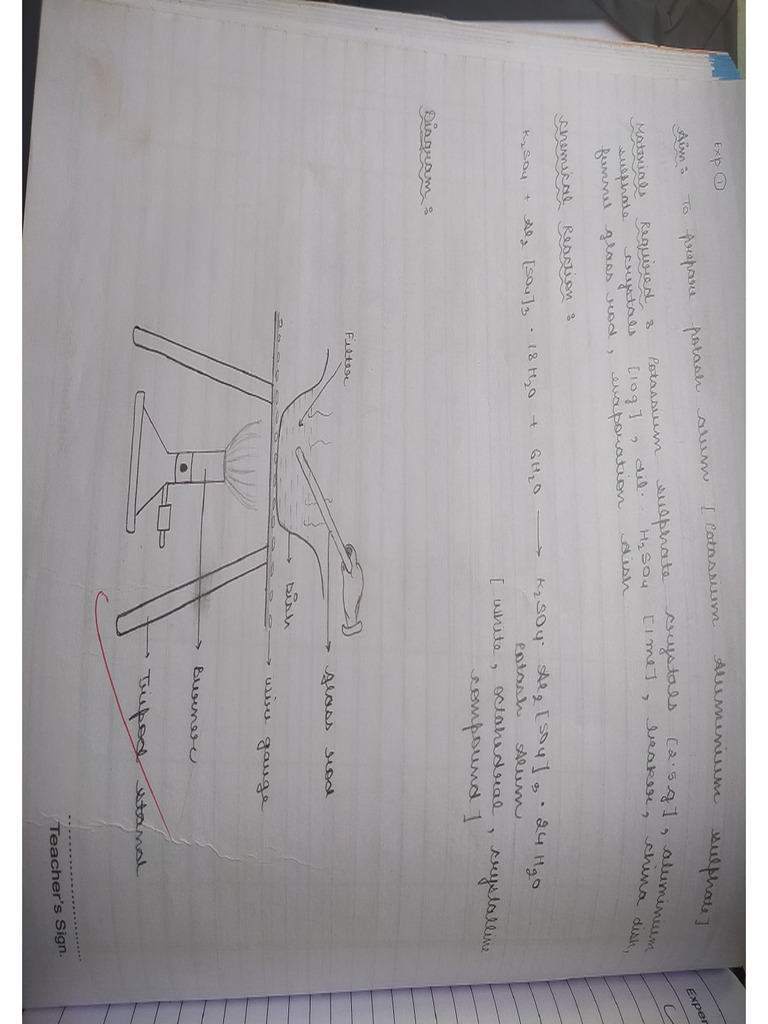 Exp ①
Aim : To prepare potash alum [Potassium Aluminium sulphate]
Materials Required : Potassium sulphate crystals [2.5g], aluminium
sulphate crystals [10g], dil. H2SO4 [1ml], beaker, china dish,
funnel glass rod, evaporation dish
Chemical Reaction :
K2SO4 + Al2[SO4]3 · 18H2O + 6H2O → K2SO4 · Al2[SO4]3 · 24H2O
Potash Alum
[white, octahedral, crystalline
compound]
Diagram :
Filter
Glass rod
Dish
wire gauge
Burner
Tripod stand
Teacher's Sign.
Exper